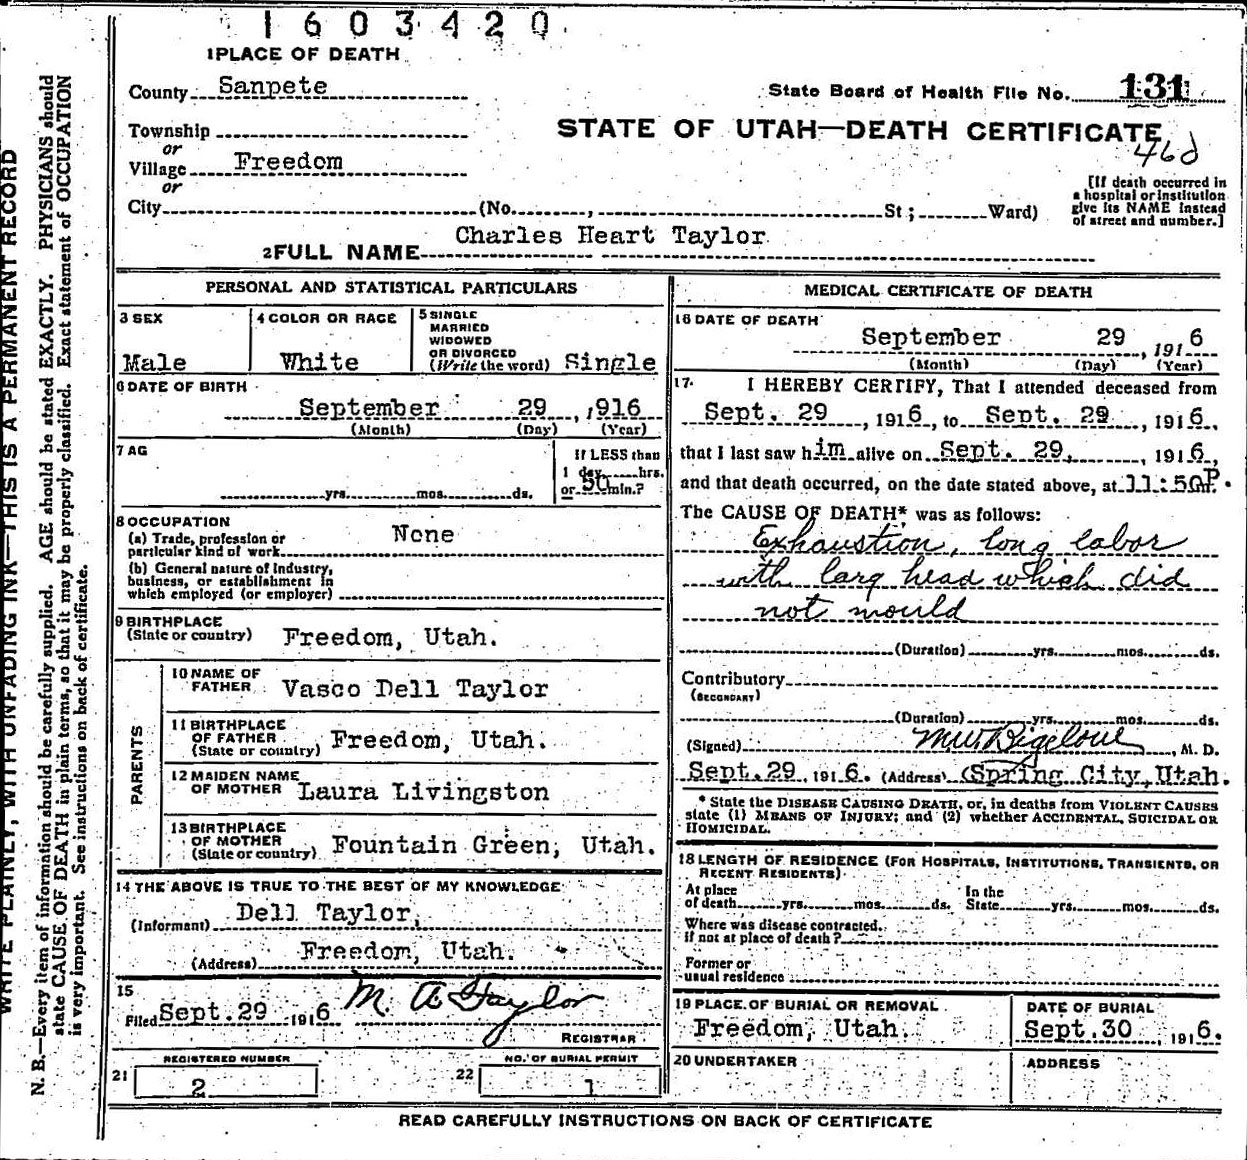 1603420
1 PLACE OF DEATH
County Sanpete
State Board of Health File No. 131
Township
STATE OF UTAH—DEATH CERTIFICATE
or
Village Freedom
46d
or
City (No. , St; Ward)
[If death occurred in
a hospital or institution
give its NAME instead
of street and number.]
2 FULL NAME Charles Heart Taylor
PERSONAL AND STATISTICAL PARTICULARS
3 SEX
Male
4 COLOR OR RACE
White
5 SINGLE
MARRIED
WIDOWED
OR DIVORCED
(Write the word) Single
6 DATE OF BIRTH
September 29, 1916
(Month) (Day) (Year)
7 AG
yrs. mos. ds.
If LESS than
1 day hrs.
or 50 min.?
8 OCCUPATION
(a) Trade, profession or
particular kind of work None
(b) General nature of industry,
business, or establishment in
which employed (or employer)
9 BIRTHPLACE
(State or country) Freedom, Utah.
PARENTS
10 NAME OF
FATHER Vasco Dell Taylor
11 BIRTHPLACE
OF FATHER
(State or country) Freedom, Utah.
12 MAIDEN NAME
OF MOTHER Laura Livingston
13 BIRTHPLACE
OF MOTHER
(State or country) Fountain Green, Utah.
14 THE ABOVE IS TRUE TO THE BEST OF MY KNOWLEDGE
(Informant) Dell Taylor,
(Address) Freedom, Utah.
15
Filed Sept. 29 1916 M. A. Taylor
REGISTRAR
REGISTERED NUMBER
21 2
NO. OF BURIAL PERMIT
22 1
MEDICAL CERTIFICATE OF DEATH
16 DATE OF DEATH
September 29, 1916
(Month) (Day) (Year)
17. I HEREBY CERTIFY, That I attended deceased from
Sept. 29, 1916, to Sept. 29, 1916.,
that I last saw him alive on Sept. 29, , 1916,
and that death occurred, on the date stated above, at 11:50 P.
The CAUSE OF DEATH* was as follows:
Exhaustion, long labor
with larg head which did
not mould
(Duration) yrs. mos. ds.
Contributory
(SECONDARY)
(Duration) yrs. mos. ds.
(Signed) Bigelow, M. D.
Sept. 29, 1916. (Address) Spring City, Utah.
* State the DISEASE CAUSING DEATH, or, in deaths from VIOLENT CAUSES
state (1) MEANS OF INJURY; and (2) whether ACCIDENTAL, SUICIDAL OR
HOMICIDAL.
18 LENGTH OF RESIDENCE (FOR HOSPITALS, INSTITUTIONS, TRANSIENTS, OR
RECENT RESIDENTS)
At place
of death yrs. mos. ds.
In the
State yrs. mos. ds.
Where was disease contracted,
if not at place of death?
Former or
usual residence
19 PLACE OF BURIAL OR REMOVAL
Freedom, Utah.
DATE OF BURIAL
Sept. 30, 1916.
20 UNDERTAKER
ADDRESS
READ CAREFULLY INSTRUCTIONS ON BACK OF CERTIFICATE
WRITE PLAINLY, WITH UNFADING INK—THIS IS A PERMANENT RECORD
N. B.—Every item of information should be carefully supplied. AGE should be stated EXACTLY. PHYSICIANS should
state CAUSE OF DEATH in plain terms, so that it may be properly classified. Exact statement of OCCUPATION
is very important. See instructions on back of certificate.